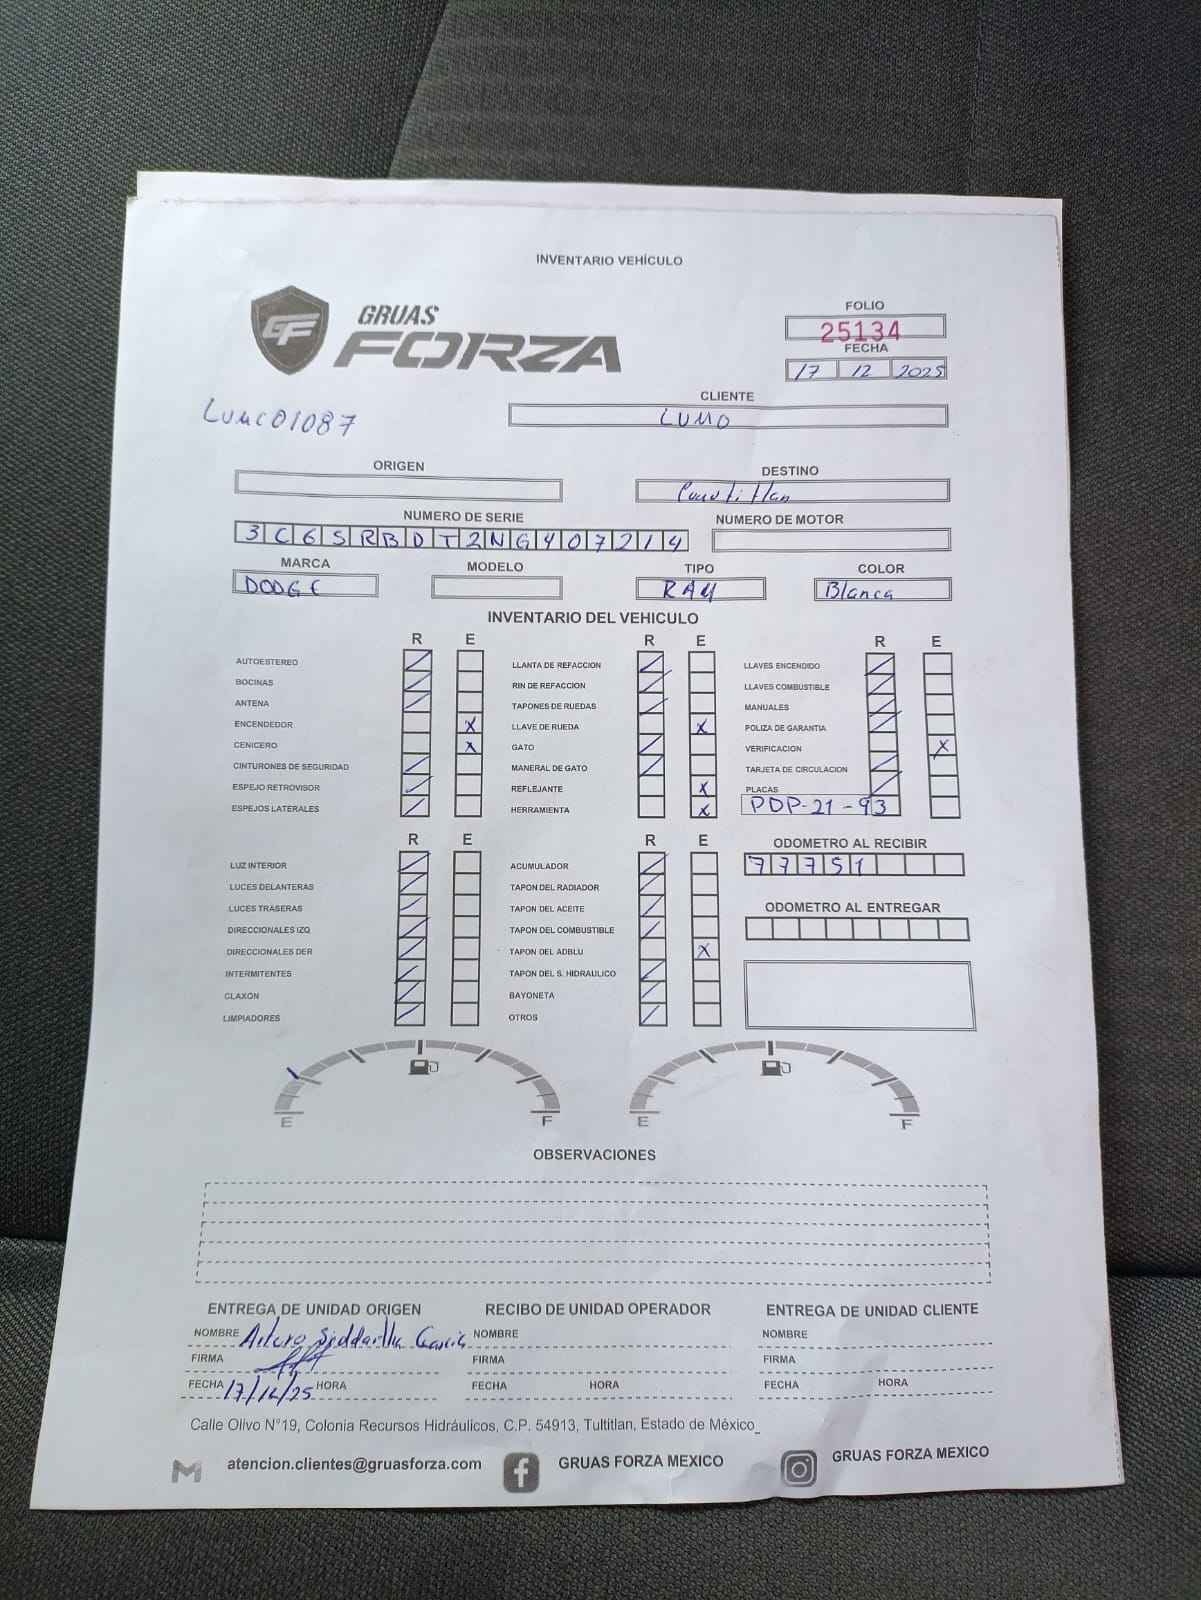 INVENTARIO VEHÍCULO
GF
GRUAS
FORZA
FOLIO
25134
FECHA
17 12 2025
CLIENTE
LUMO
LUMC01087
ORIGEN
DESTINO
Cuautitlan
NUMERO DE SERIE
NUMERO DE MOTOR
3C6SRBDT2NG407214
MARCA MODELO TIPO COLOR
DODGE RAM Blanca
INVENTARIO DEL VEHICULO
R E R E R E
AUTOESTEREO / LLANTA DE REFACCION / LLAVES ENCENDIDO /
BOCINAS / RIN DE REFACCION / LLAVES COMBUSTIBLE /
ANTENA / TAPONES DE RUEDAS / MANUALES /
ENCENDEDOR X LLAVE DE RUEDA X POLIZA DE GARANTIA /
CENICERO X GATO / VERIFICACION X
CINTURONES DE SEGURIDAD / MANERAL DE GATO / TARJETA DE CIRCULACION /
ESPEJO RETROVISOR / REFLEJANTE X PLACAS /
ESPEJOS LATERALES / HERRAMIENTA X PDP-21-93
R E R E ODOMETRO AL RECIBIR
LUZ INTERIOR / ACUMULADOR / 77751
LUCES DELANTERAS / TAPON DEL RADIADOR /
LUCES TRASERAS / TAPON DEL ACEITE / ODOMETRO AL ENTREGAR
DIRECCIONALES IZQ / TAPON DEL COMBUSTIBLE /
DIRECCIONALES DER / TAPON DEL ADBLU X
INTERMITENTES / TAPON DEL S. HIDRAULICO /
CLAXON / BAYONETA /
LIMPIADORES / OTROS /
E F E F
OBSERVACIONES
ENTREGA DE UNIDAD ORIGEN RECIBO DE UNIDAD OPERADOR ENTREGA DE UNIDAD CLIENTE
NOMBRE Arturo Siddartha Garcia NOMBRE NOMBRE
FIRMA FIRMA FIRMA
FECHA 17/12/25 HORA FECHA HORA FECHA HORA
Calle Olivo N°19, Colonia Recursos Hidráulicos, C.P. 54913, Tultitlan, Estado de México_
atencion.clientes@gruasforza.com GRUAS FORZA MEXICO GRUAS FORZA MEXICO